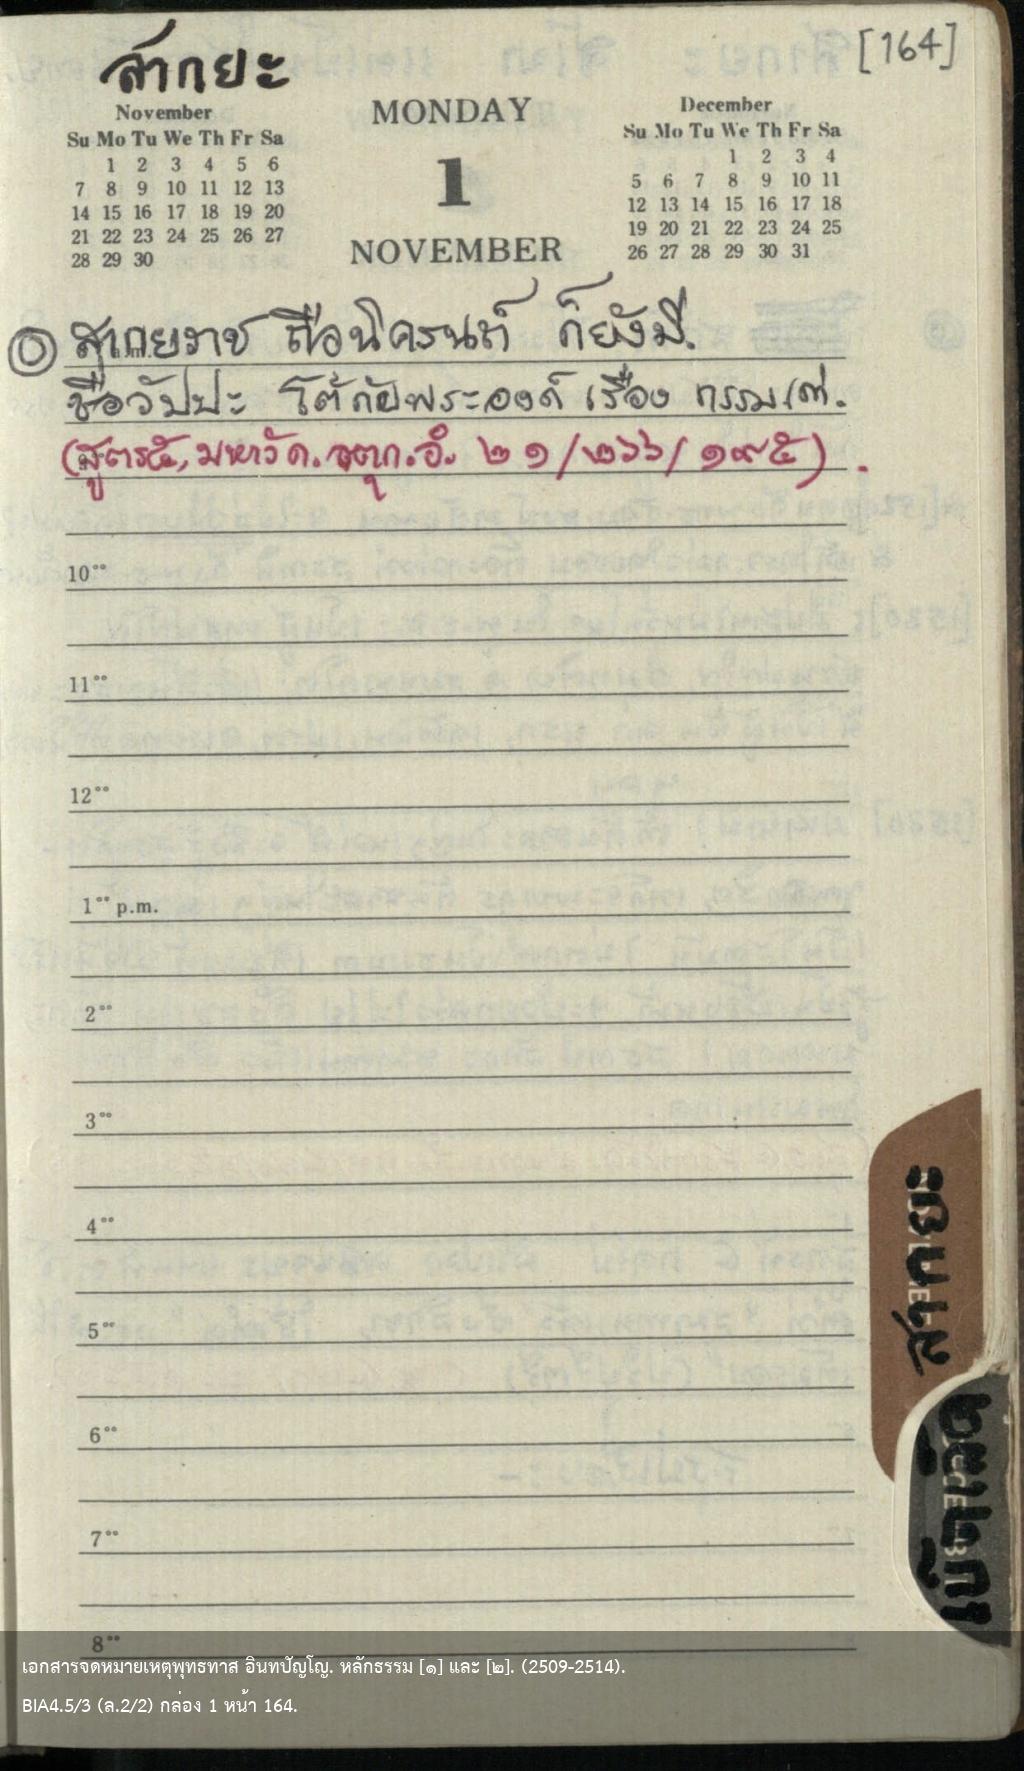 สากยะ
[164]
November
Su Mo Tu We Th Fr Sa
1 2 3 4 5 6
7 8 9 10 11 12 13
14 15 16 17 18 19 20
21 22 23 24 25 26 27
28 29 30
MONDAY
1
NOVEMBER
December
Su Mo Tu We Th Fr Sa
1 2 3 4
5 6 7 8 9 10 11
12 13 14 15 16 17 18
19 20 21 22 23 24 25
26 27 28 29 30 31
สากยราช ถือนิครนถ์ ก็ยังมี.
ชื่อวัปปะ โต้กับพระองค์ เรื่อง กรรมเก่า.
(สูตร๕, มหาวัค. จตุก.อํ. ๒๑/๒๖๖/๑๙๕).
10°°
11°°
12°°
1°° p.m.
2°°
3°°
4°°
5°°
6°°
7°°
8°°
สากยะ
เอกสารจดหมายเหตุพุทธทาส อินทปัญโญ. หลักธรรม [๑] และ [๒]. (2509-2514).
BIA4.5/3 (ล.2/2) กล่อง 1 หน้า 164.